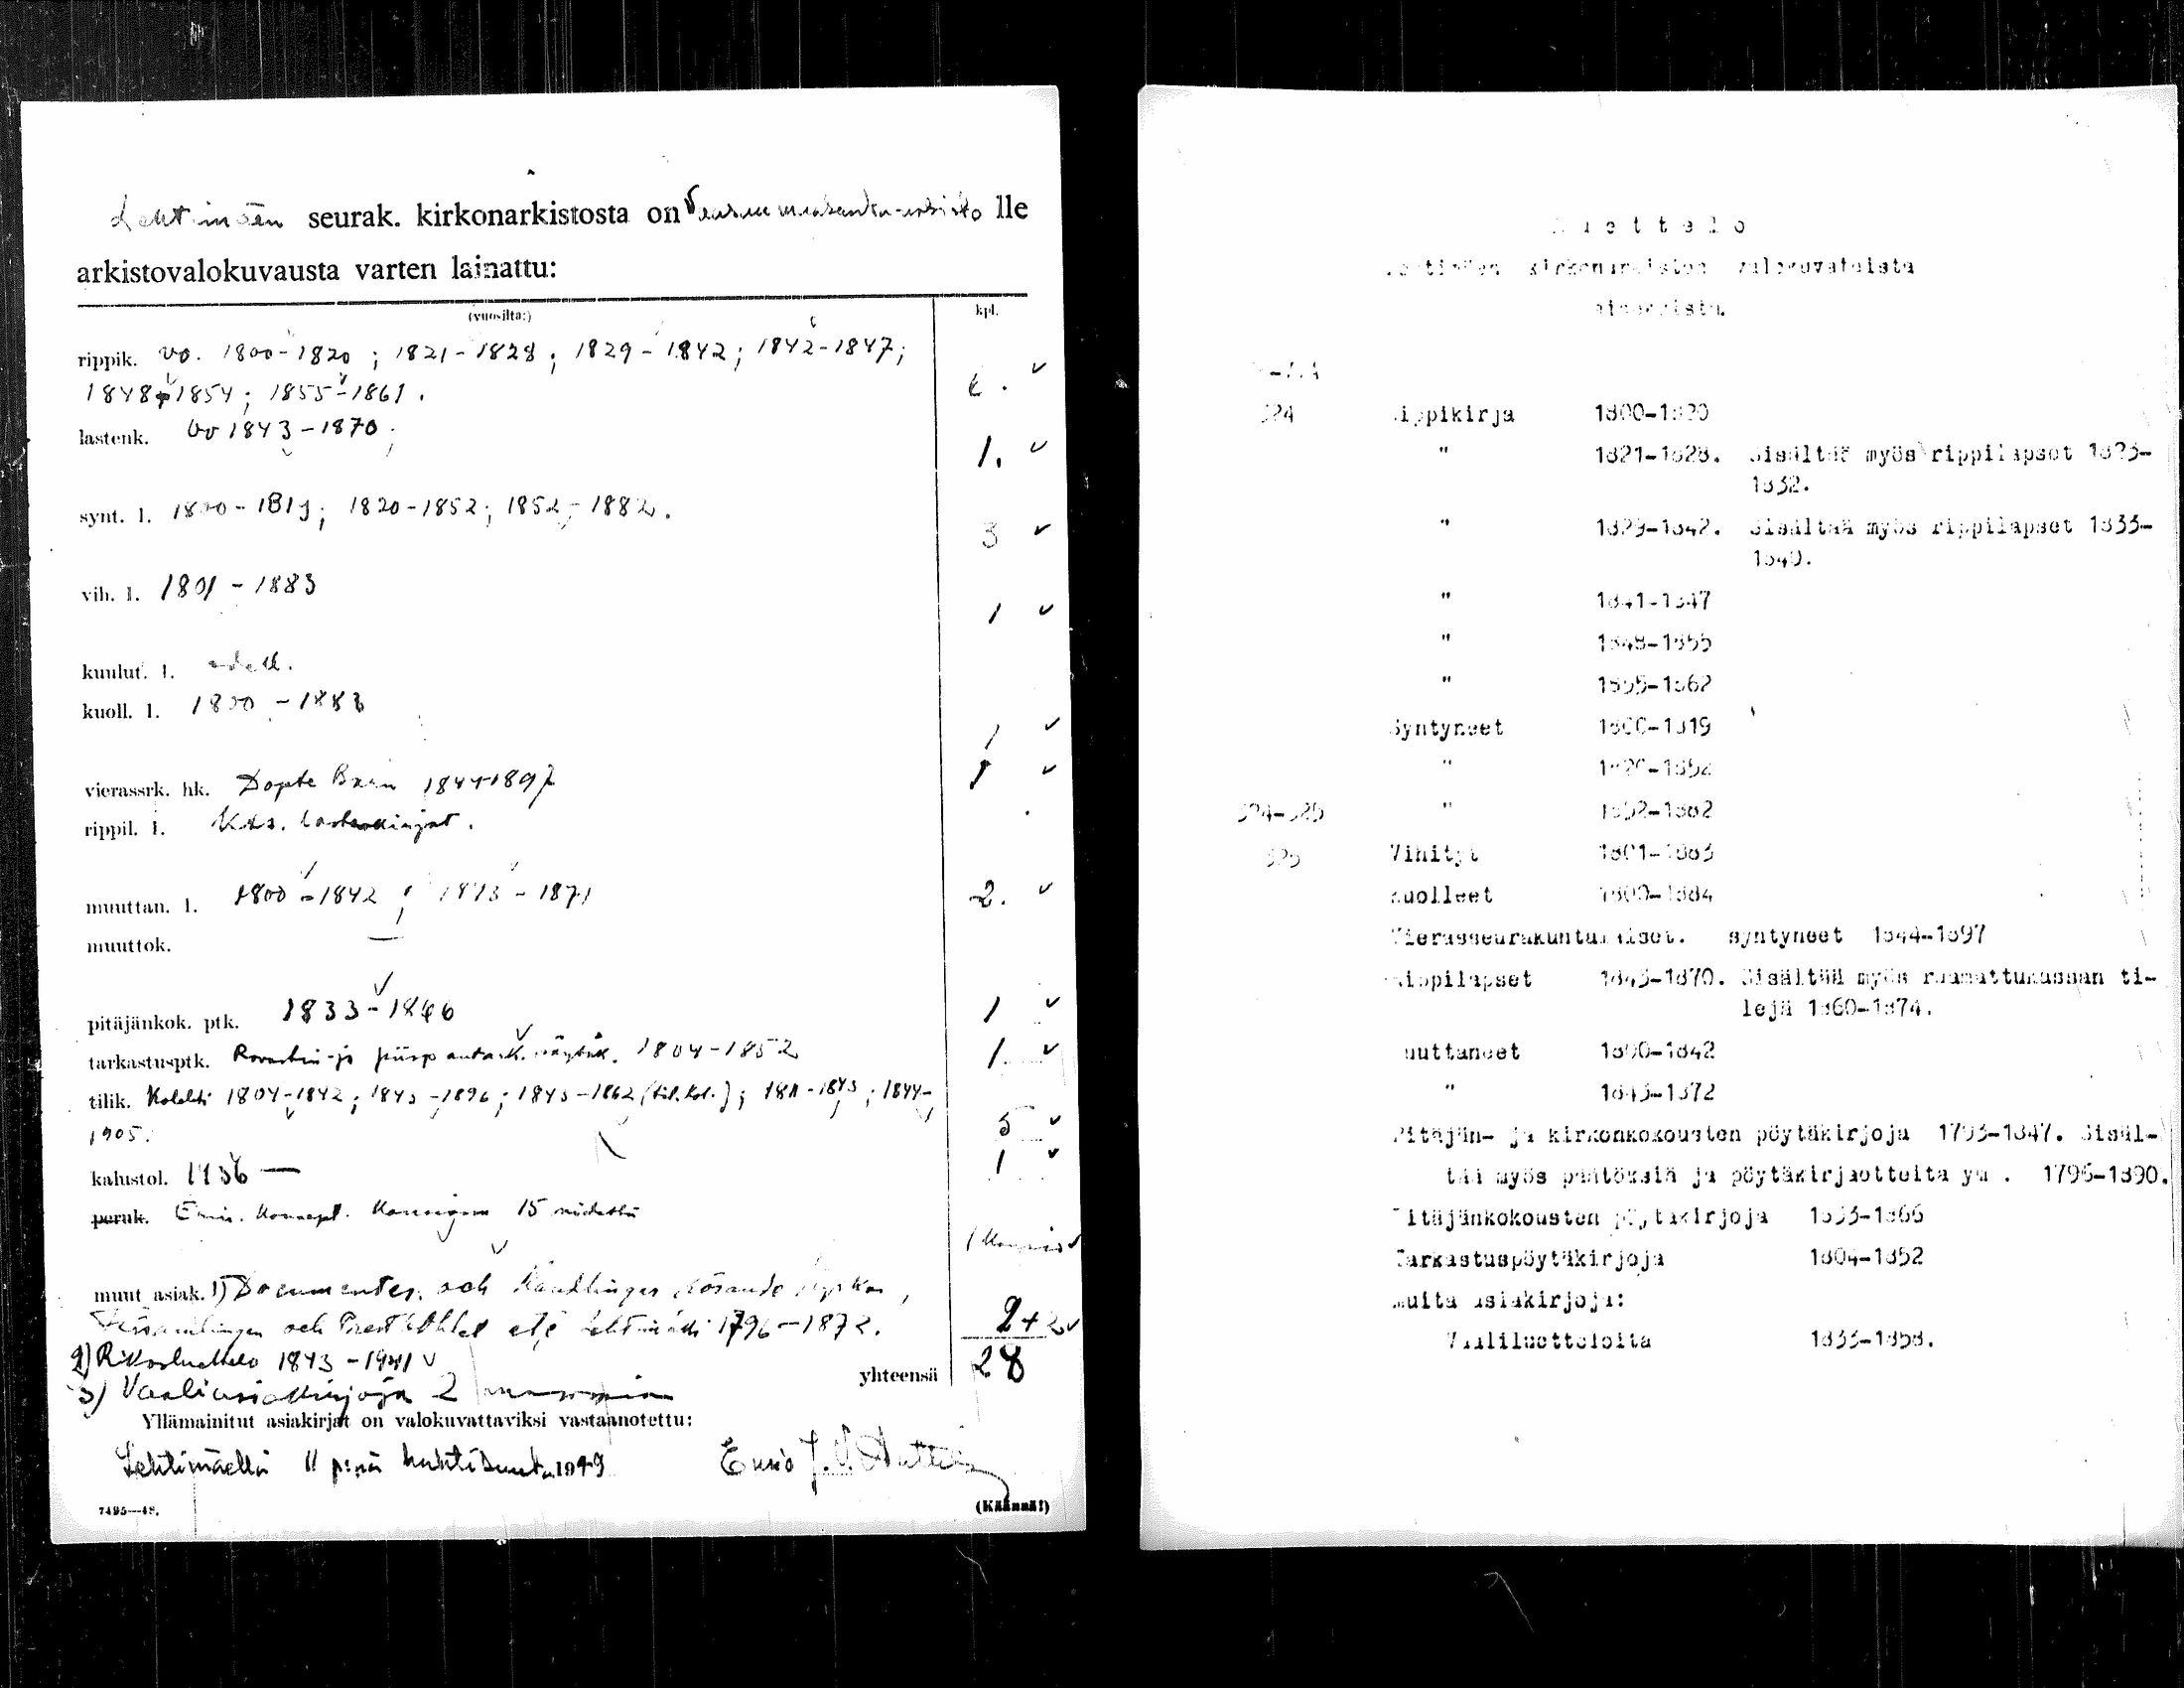 Lehtimäen seurak. kirkonarkistosta on Vaasan maakunta-arkisto lle
arkistovalokuvausta varten lainattu:
(vuosilta:) kpl.
rippik. vv. 1800-1820 ; 1821-1828 ; 1829-1842 ; 1842-1847 ;
1848-1854 ; 1855-1861 . 6.
lastenk. vv 1843-1870 ; 1.
synt. l. 1800-1819 ; 1820-1852 ; 1852-1882 . 3
vih. l. 1801-1883 1
kuulut. l. edell.
kuoll. l. 1800-1883 1
vierassrk. hk. Döpte Barn 1844-1897 1
rippil. l. Kts. lastenkirjat .
muuttan. l. 1800-1842 ; 1843-1871 2.
muuttok. —
pitäjänkok. ptk. 1833-1866 1
tarkastusptk. Rovastin- ja 1804-1852 1.
tilik. 1804-1842 ; 1843-1896 ; 1843-1862 ; 1811-1843 ; 1844-
1905. 5
kalustol. 1936 — 1
peruk. 15
muut asiak. 1) Documenter och Handlingar rörande Kyrkan,
Församlingen och Lehtimäki 1796-1872. 2+2
2) Rikosluettelo 1843-1941
yhteensä 28
3) Vaaliasiakirjoja 2
Yllämainitut asiakirjat on valokuvattaviksi vastaanotettu:
Lehtimäellä 11 p:nä huhtikuuta 1949
7495—48. (Käännä!)
Luettelo
Lehtimäen kirkonarkiston valokuvatuista
asiakirjoista.
524 Rippikirja 1800-1820
" 1821-1828. Sisältää myös rippilapset 1823-
1832.
" 1829-1842. Sisältää myös rippilapset 1833-
1840.
" 1841-1847
" 1848-1855
" 1855-1862
Syntyneet 1800-1819
" 1820-1852
524-525 " 1852-1882
525 Vihityt 1801-1883
Kuolleet 1800-1884
Vierasseurakuntalaiset. syntyneet 1844-1897
Rippilapset 1843-1870. Sisältää myös raamattukassan ti-
lejä 1860-1874.
Muuttaneet 1800-1842
" 1843-1872
Pitäjän- ja kirkonkokousten pöytäkirjoja 1793-1847. Sisäl-
tää myös päätöksiä ja pöytäkirjaotteita ym . 1796-1890.
Pitäjänkokousten pöytäkirjoja 1833-1866
Tarkastuspöytäkirjoja 1804-1852
Muita asiakirjoja:
Vaaliluetteloita 1833-1858.